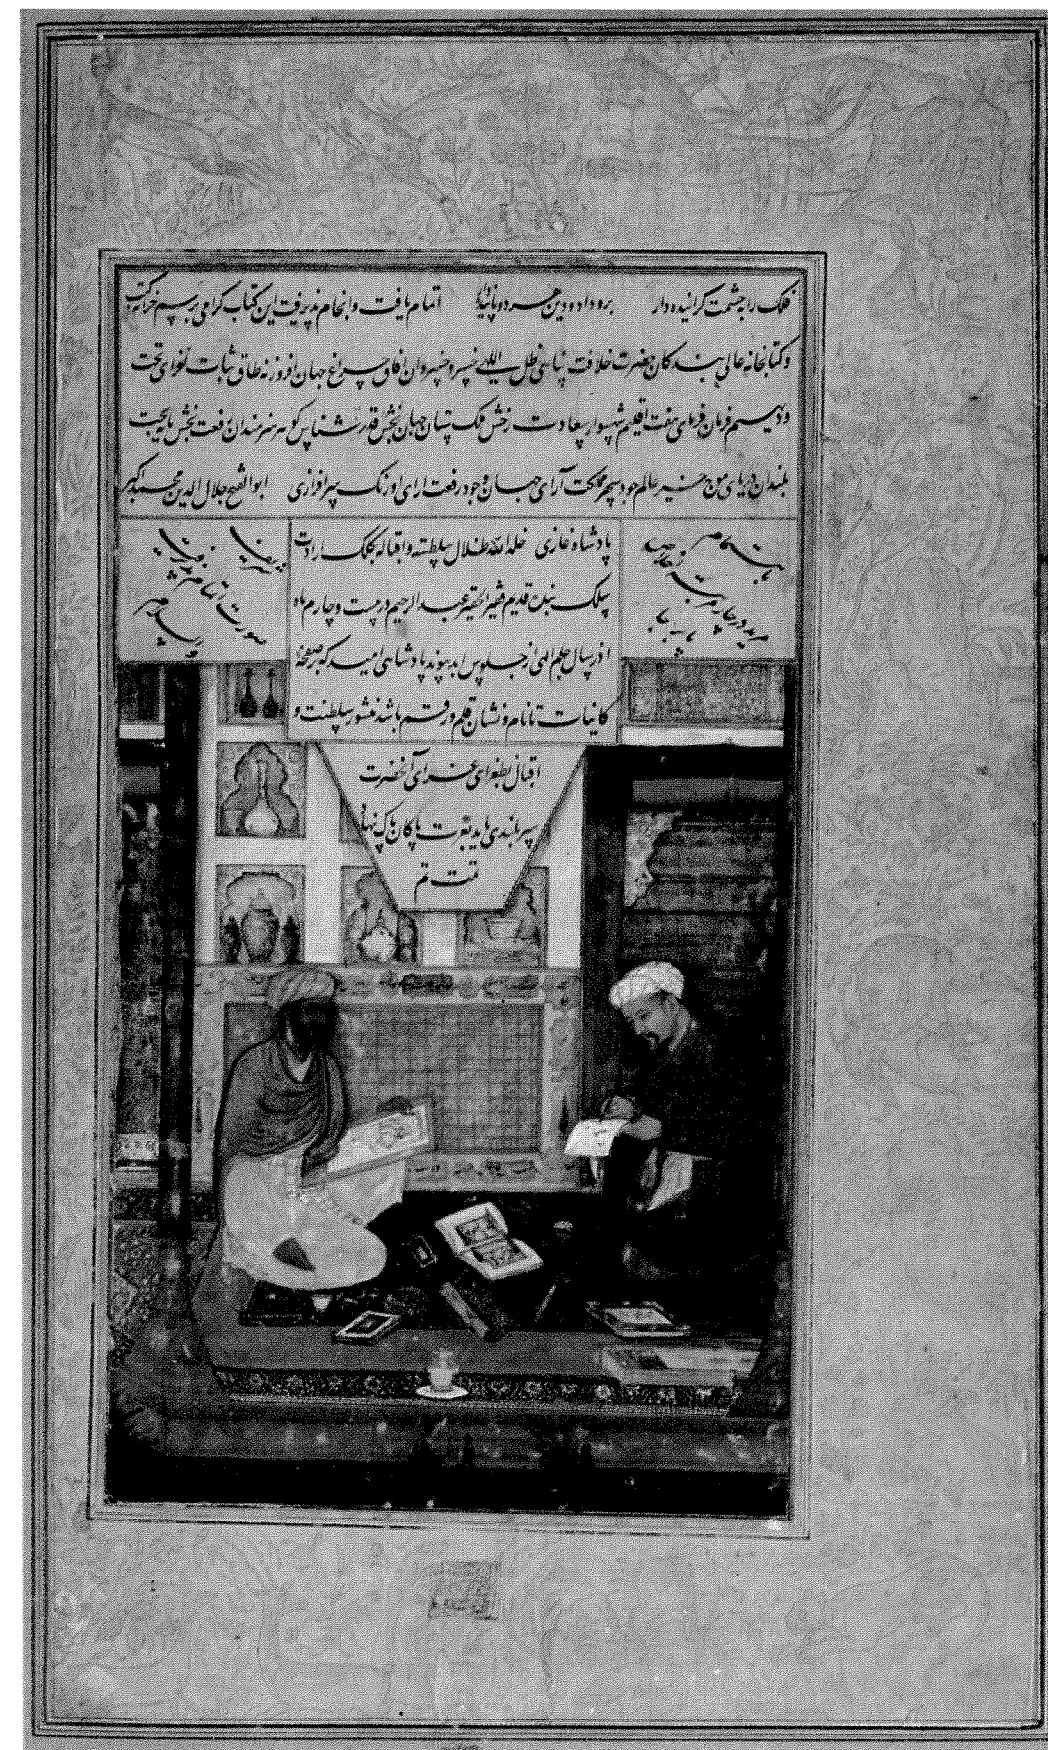 فلک را به حشمت گرانیده دار برو داد و دین هر دو پاینده دار اتمام یافت و انجام پذیرفت این کتاب گرامی برسم خزانه کتب
و کتابخانه عالی بندگان حضرت خلافت پناهی ظل اللهی خسرو خسروان آفاق چراغ جهان افروز نه طاق ثبات قوای تخت
و دیهیم فرمان فرمای هفت اقلیم شهسوار سعادت رخش ملک ستان جهان بخش قدرشناس گوهر هنرمندان رفعت بخش پایه تخت
بلندان دریای موج خیز عالم جود سپهر مملکت آرای جهان وجود رفعت آرای اورنگ سرافرازی ابوالفتح جلال الدین محمد اکبر
پادشاه غازی خلد الله ظلال سلطنته و اقباله بکلک ارادت
سلک بنده قدیم فقیر الحقیر عبد الرحیم در بیست و چارم ماه
آذر سال چهلم الهی از جلوس ابد پیوند پادشاهی امید که بر صفحه
کاینات تا نام و نشان قلم و رقم باشد منشور سلطنت و
اقبال بطغرای غرای آنحضرت
سربلندی یابد بعزت پاکان پاک نهاد
تمت تم